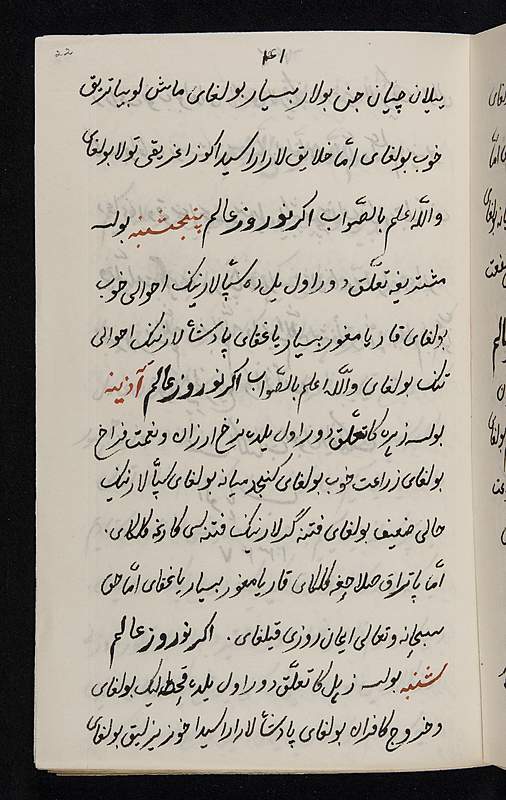 ۴۱
ییلان چیان جن بولار بسیار بولغای ماش لوبیا تریق
خوب بولغای اما خلایق لار اراسیدا کوز اغریقی تولا بولغای
والله اعلم بالصواب اکر نوروز عالم پنجشنبه بولسه
مشتریغه تعلق دور اول یلده سپالارنیک احوالی خوب
بولغای قار یامغور بسیار یاغقای پادشالارنیک احوالی
تنک بولغای والله اعلم بالصواب اکر نوروز عالم آدینه
بولسه زهره کا تعلق دور اول یلده نرخ ارزان و نعمت فراخ
بولغای زراعت خوب بولغای کنجد میانه بولغای سپالارنیک
حالی ضعیف بولغای فتنه گرلارنیک فتنه سی کارغه کلکای
اما یاتراق صلاحغه کلکای قار یامغور بسیار یاغقای اما حق
سبحانه وتعالی ایمان روزی قیلغای اکر نوروز عالم
شنبه بولسه زحل کا تعلق دور اول یلده قحط لیک بولغای
و خروج کافران بولغای پادشالار اراسیدا خونریزلیق بولغای